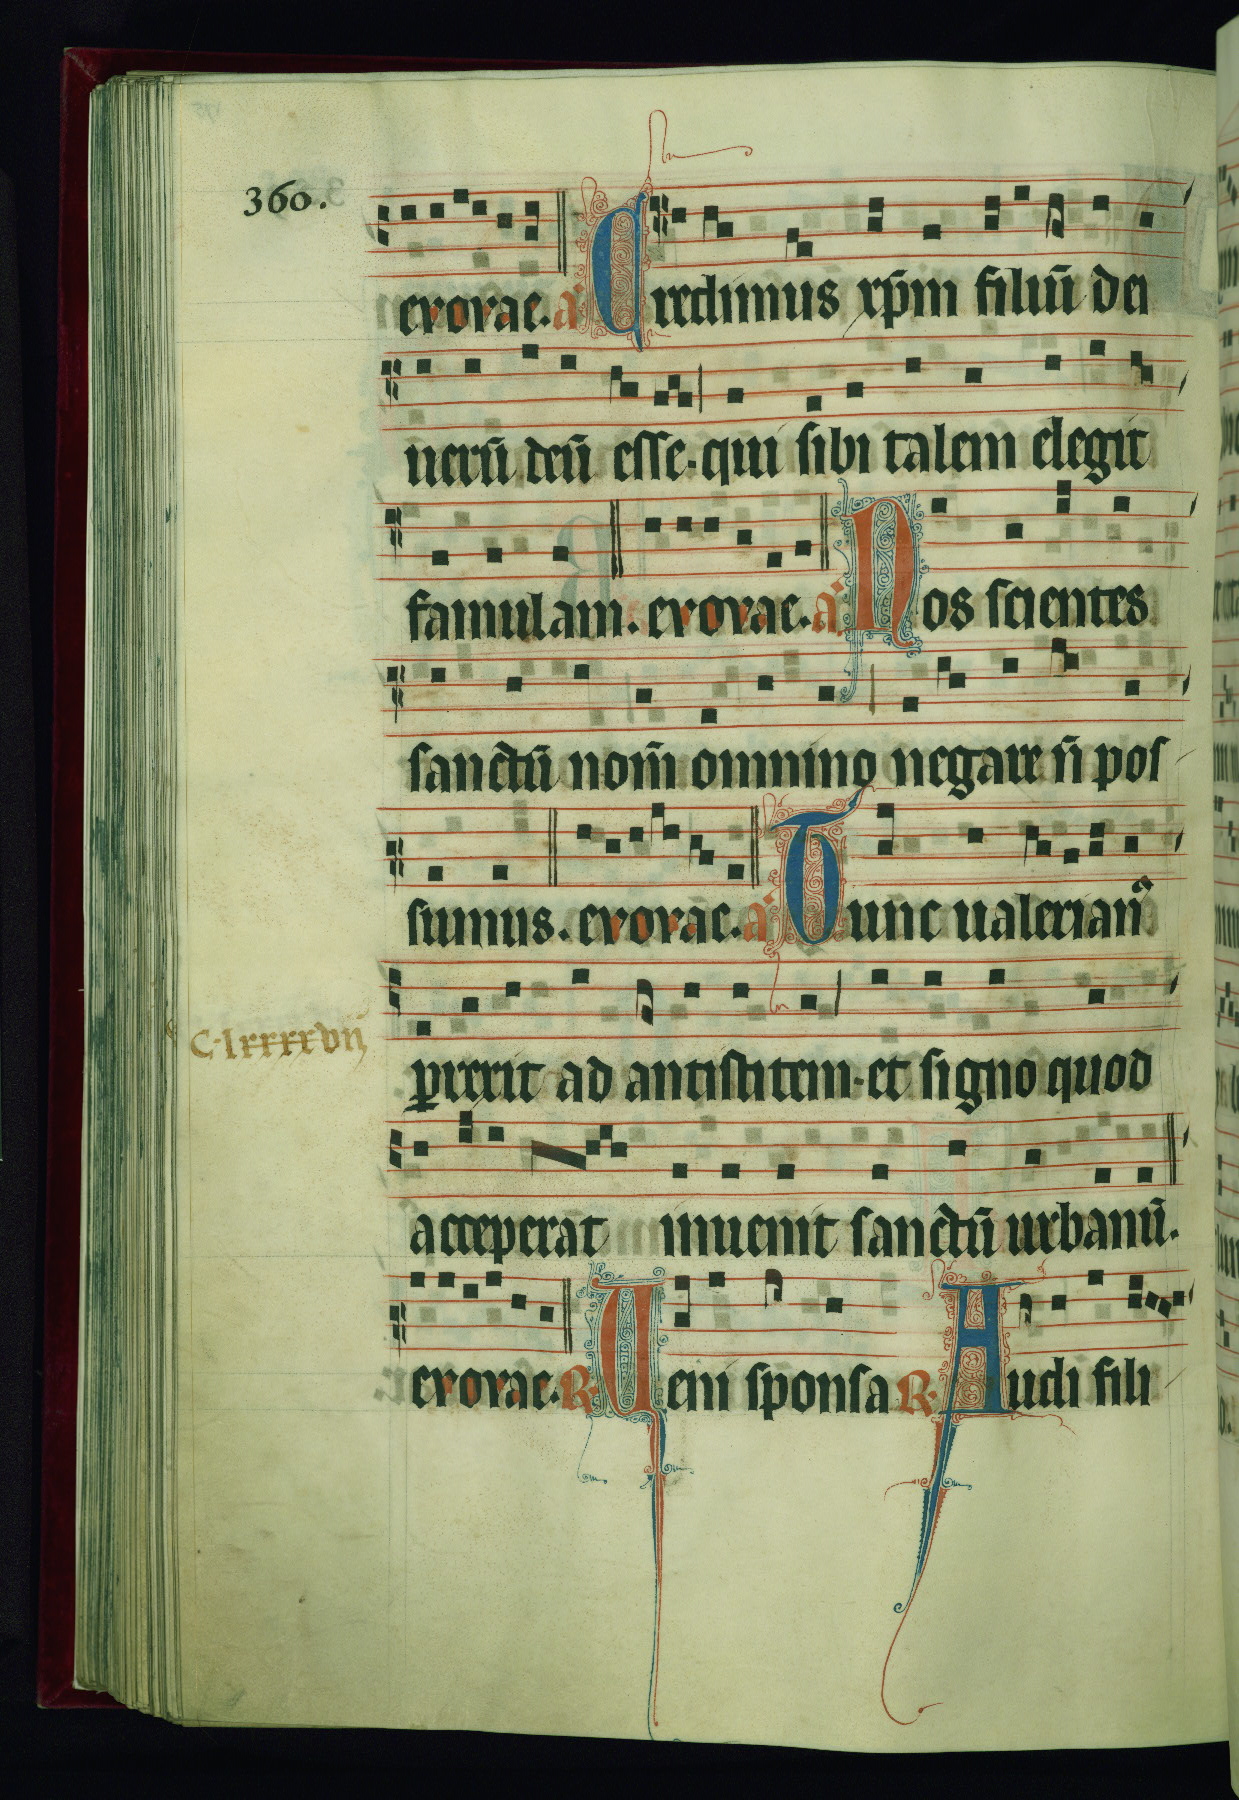 360.
evovae. a Credimus xp̄m filiū dei
uerū deū esse. qui sibi talem elegit
famulam. evovae. a Nos scientes
sanctū nom̄ omnino negare n̄ pos
sumus. evovae. a Tunc ualerianꝰ
C. lxxxxvii
ꝑrexit ad antistitem. et signo quod
acceperat inuenit sanctū urbanū.
evovae. R. Ueni sponsa R. Audi fili